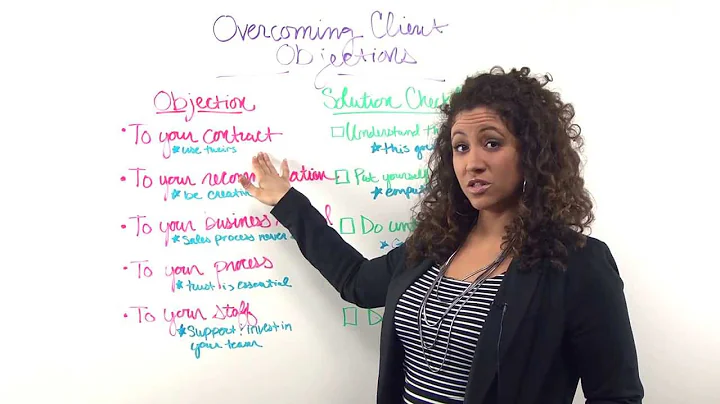 Overcoming Client
Objections
Objection
• To your contract
★ use theirs
• To your
★ be
• To your business
★ Sales process never
• To your process
★ trust is essential
• To your staff
★ Support! invest in
your team
Solution
Understand
★ this
Put yourself
Do